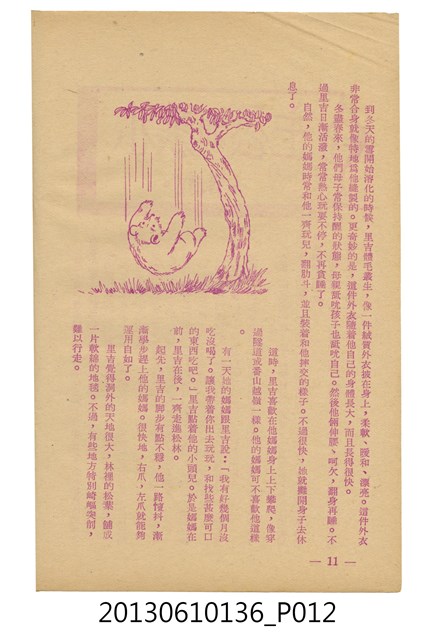 到冬天的雪開始溶化的時候，里吉體毛叢生，像一件絨質外衣披在身上，柔軟、暖和、漂亮。這件外衣
非常合身就像特地為他縫製的。更奇妙的是，這件外衣隨着他自己的身體長大，而且長得很快。
冬盡春來，他們母子常保持醒的狀態，母親舐吮孩子也舐吮自己。然後他倆伸腰、呵欠，翻身再睡。不
過里吉日漸活潑，常常熱心玩耍不停，不再貪睡了。
自然，他的媽媽時常和他一齊玩兒，翻觔斗，並且裝着和他摔交的樣子。不過很快，她就攤開身子去休
息了。
這時，里吉喜歡在他媽媽身上上下攀爬，像穿
過隧道或番山越嶺一樣。他的媽媽可不喜歡他這樣
。
有一天地的媽媽跟里吉說：「我有好幾個月沒
吃沒喝了。讓我帶着你出去玩玩，和找些甚麼可口
的東西吃吧。」里吉點着他的小頭兒。於是媽媽在
前，里吉在後，一齊走進松林。
起先，里吉的脚步有點不穩，他一路懂抖，漸
漸學步趕上他的媽媽。很快地，右爪，左爪就能夠
運用自如了。
里吉覺得洞外的天地很大，林裡的松葉，舖成
一片軟綿的地毯。不過，有些地方特別崎嶇突削，
難以行走。
— 11 —
20130610136_P012